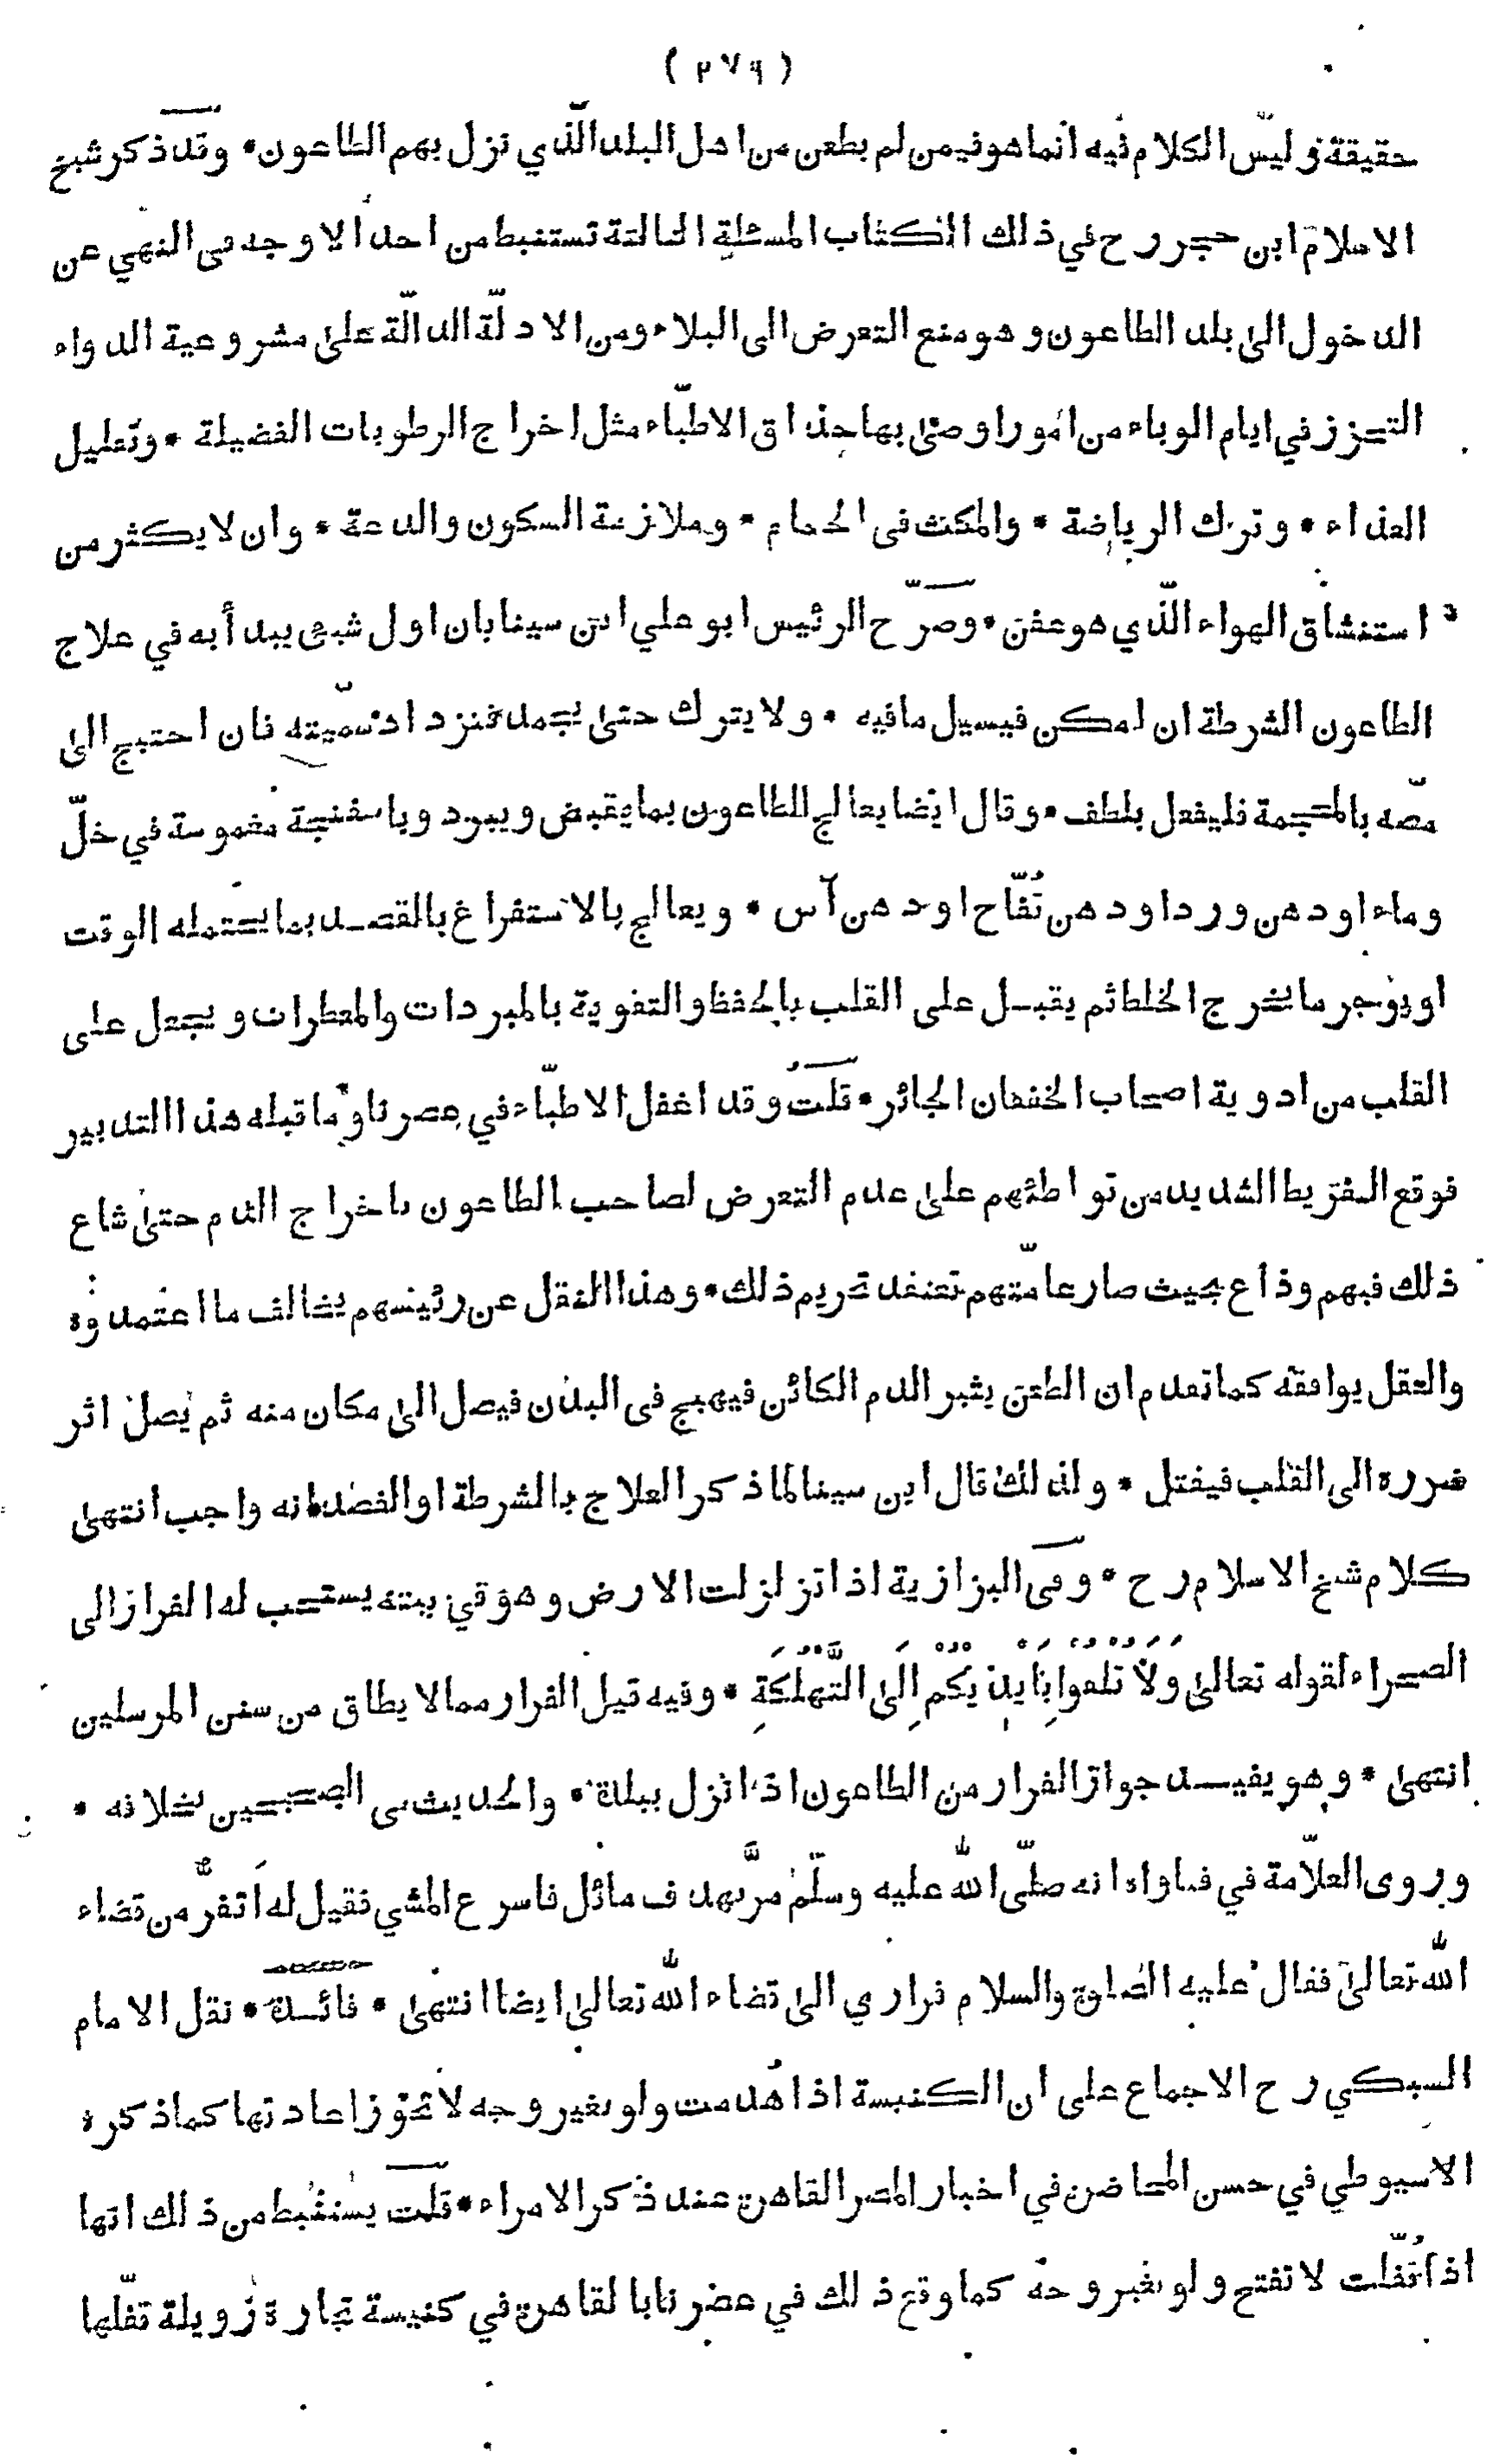 ( ٢٧٦ )
حقيقة و ليس الكلام فيه انما هو فيمن لم يطعن من اهل البلد الذي نزل بهم الطاعون * وقد ذكر شيخ
الاسلام ابن حجر رح في ذلك الكتاب المسئلة الثالثة تستنبط من احد الاوجه في النهي عن
الدخول الى بلد الطاعون و هو منع التعرض الى البلاء ومن الادلّة الدالّة على مشروعية الدواء
التحرز في ايام الوباء من امور اوصى بها حذاق الاطبّاء مثل اخراج الرطوبات الفضيلة * وتقليل
الغذاء * وترك الرياضة * والمكث في الحمام * وملازمة السكون والدعة * وان لا يكثر من
استنشاق الهواء الّذي هو عفن * وصرّح الرئيس ابو علي ابن سينا بان اول شيء يبدأ به في علاج
الطاعون الشرطة ان امكن فيسيل ما فيه * ولا يترك حتى يجمد فتزداد سمّيته فان احتيج الى
مصّه بالمحجمة فليفعل بلطف * وقال ايضا يعالج الطاعون بما يقبض ويبرد وباسفنجة مغموسة في خلّ
وماء اودهن ورد اودهن تُفّاح اودهن آس * ويعالج بالاستفراغ بالفصد بما يحتمله الوقت
او يؤجر ما يخرج الخلط ثم يقبل على القلب بالحفظ والتقوية بالمبردات والمعطرات و يجعل على
القلب من ادوية اصحاب الخفقان الجائر * قلت وقد اغفل الاطبّاء في عصرنا وما قبله هذا التدبير
فوقع التفريط الشديد من تواطئهم على عدم التعرض لصاحب الطاعون باخراج الدم حتى شاع
ذلك فيهم وذاع بحيث صار عامّتهم تعتقد تحريم ذلك * وهذا النقل عن رئيسهم يخالف ما اعتمدوه
والعقل يوافقه كما تقدم ان الطعن يثير الدم الكائن فيهيج في البدن فيصل الى مكان منه ثم يصل اثر
ضرره الى القلب فيقتل * ولذلك قال ابن سينا لما ذكر العلاج بالشرطة اوالفصد انه واجب انتهى
كلام شيخ الاسلام رح * وفى البزازية اذا تزلزلت الارض وهو في بيته يستحب له الفرار الى
الصحراء لقوله تعالى وَلَا تُلْقُوا بِأَيْدِيكُمْ إِلَى التَّهْلُكَةِ * وفيه قيل الفرار مما لا يطاق من سنن المرسلين
انتهى * وهو يفيد جواز الفرار من الطاعون اذا نزل ببلدة * والحديث فى الصحيحين بخلافه *
وروى العلاّمة في فتاواه انه صلّى الله عليه وسلّم مرّ بهدف مائل فاسرع المشي فقيل له اتفرّ من قضاء
الله تعالى فقال عليه الصلوة والسلام فراري الى قضاء الله تعالى ايضا انتهى * فائدة * نقل الامام
السبكي رح الاجماع على ان الكنيسة اذا هُدمت ولو بغير وجه لا تجوز اعادتها كما ذكره
الاسيوطي في حسن المحاضرة في اخبار المصر القاهرة عند ذكر الامراء * قلت يستنبط من ذلك انها
اذا قُفّلت لا تفتح ولو بغير وجه كما وقع ذلك في عصرنا بالقاهرة في كنيسة بحارة زويلة قفّلها